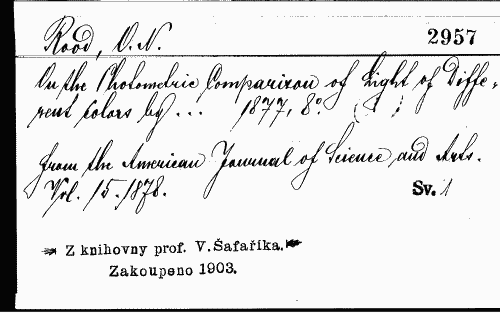 Rood, O. N.
2957
On the Photometric Comparison of Light of Diffe-
rent Colors by ... 1877, 8°. ( 1 )
From the American Journal of Science and Arts.
Vol. 15. 1878.
Sv. 1
Z knihovny prof. V. Šafaříka.
Zakoupeno 1903.